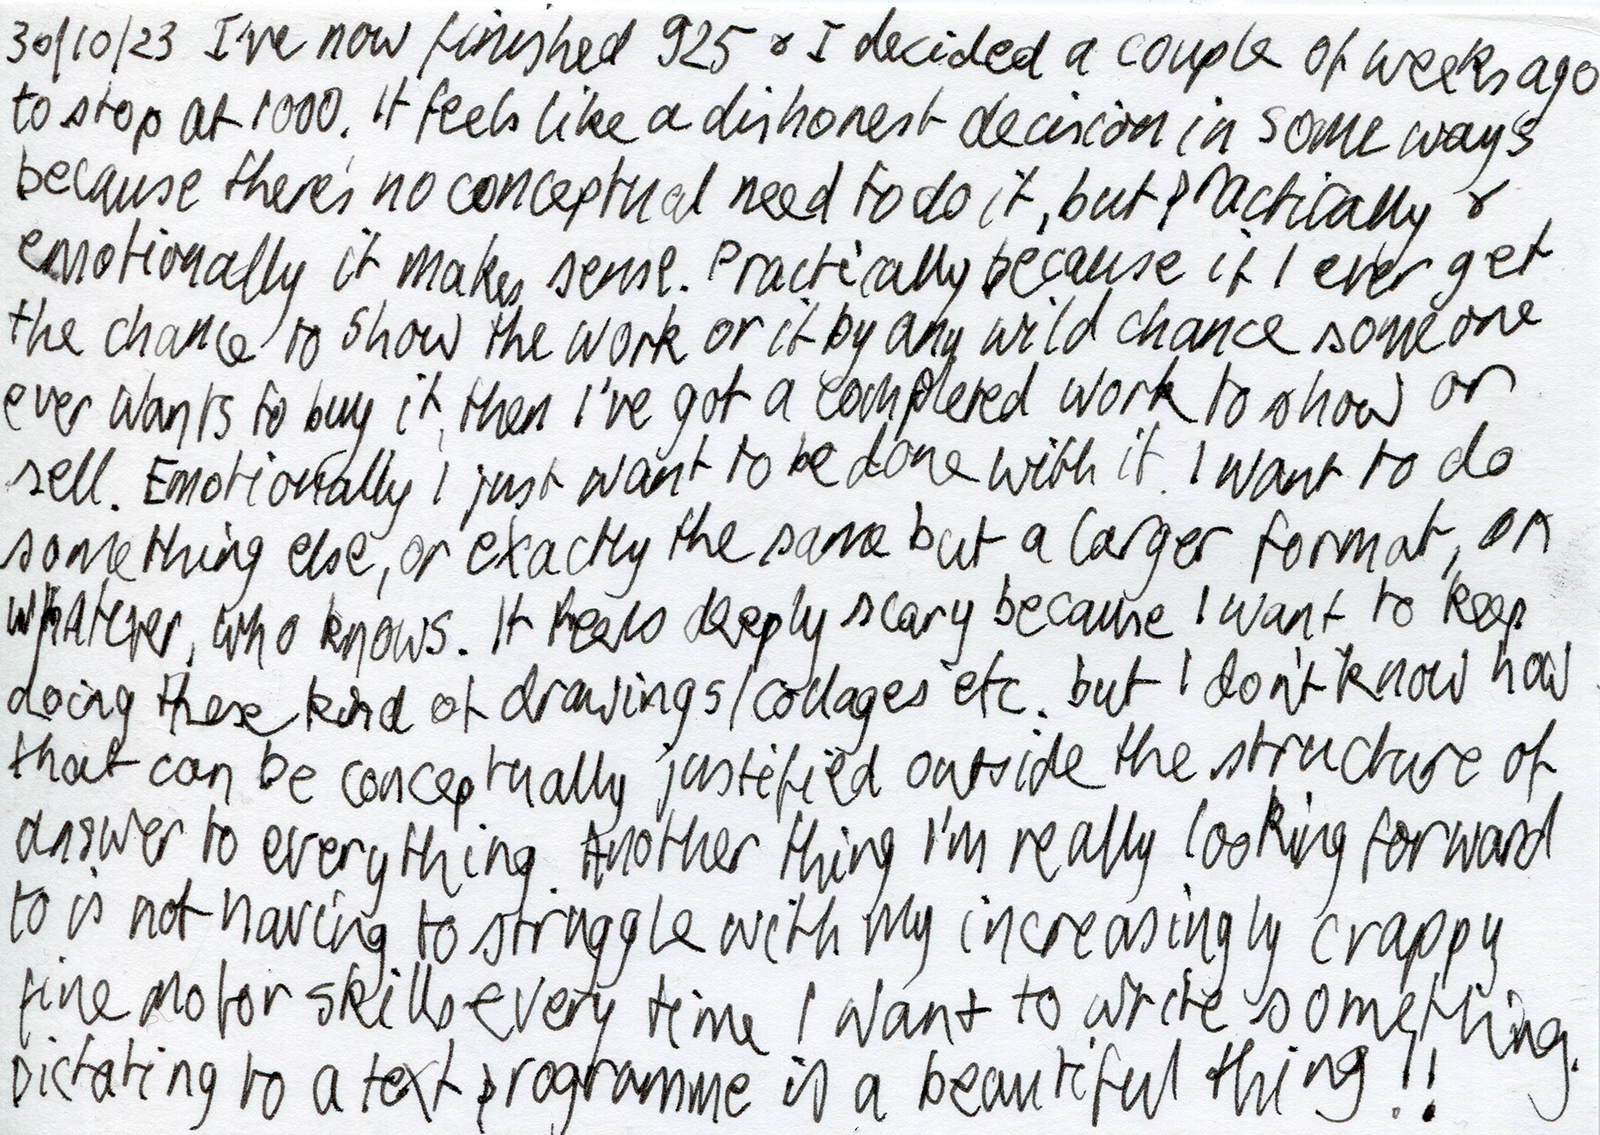 30/10/23 I've now finished 925 & I decided a couple of weeks ago
to stop at 1000. It feels like a dishonest decision in some ways
because there's no conceptual need to do it, but practically &
emotionally it makes sense. Practically because if I ever get
the chance to show the work or if by any wild chance someone
ever wants to buy it, then I've got a completed work to show or
sell. Emotionally I just want to be done with it. I want to do
something else, or exactly the same but a larger format, or
whatever, who knows. It feels deeply scary because I want to keep
doing these kind of drawings/collages etc. but I don't know how
that can be conceptually justified outside the structure of
answer to everything. Another thing I'm really looking forward
to is not having to struggle with my increasingly crappy
fine motor skills every time I want to write something.
Dictating to a text programme is a beautiful thing!!